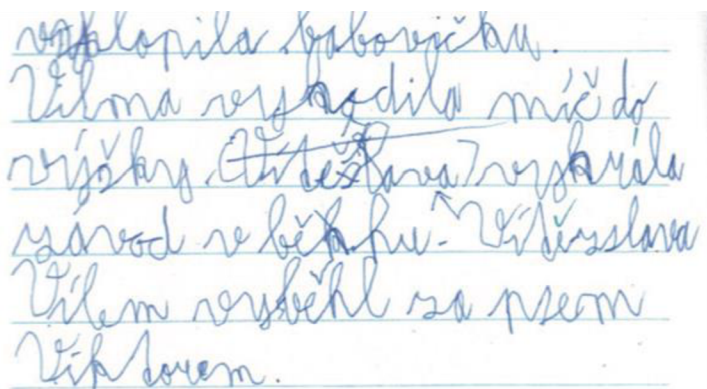 vyklopila bábovičku.
Vilma vyhodila míč do
výšky. (Vítěslava) vyhrála
závod v běhu. Vítězslava
Vilém vyběhl za psem
Viktorem.